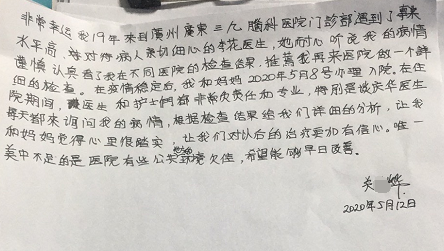 非常幸运我19年来自廣州廣東三九脑科医院门诊部遇到了專業
水平高、善对待病人亲切细心的李花医生，她耐心听说我的病情
谨慎认真看了我在不同医院的检查结果，推薦我再来医院做一个詳
细的检查。在疫情稳定后，我和妈妈2020年5月8号办理入院。在住
院期间，医生和护士们都非常负责任和专业，特别是谈庆华医生
每天都来询问我的病情，根据检查结果给我们详细的分析，让我
和妈妈觉得心里很踏实，让我们对以后的治疗更加有信心。唯一
美中不足的是医院有些公共設施欠佳，希望能够早日改善。
关 烨
2020年5月12日